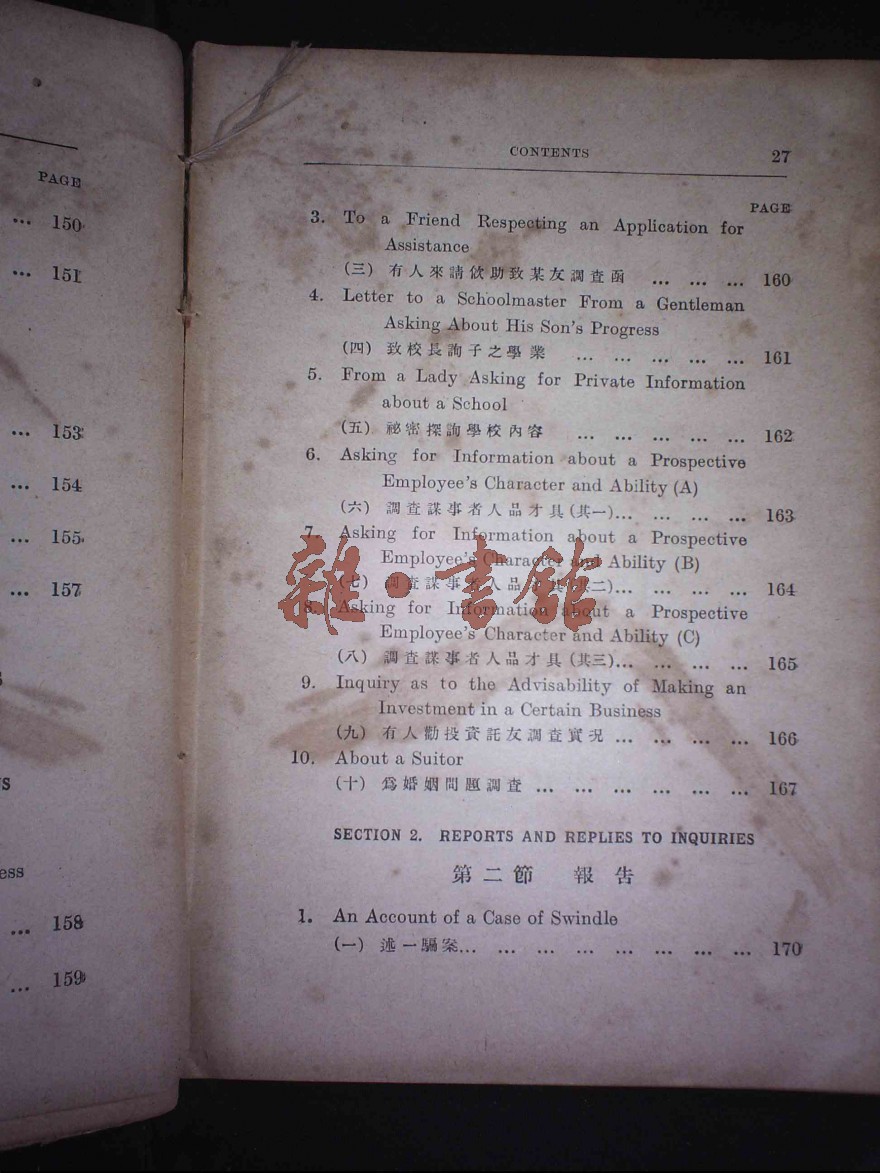 PAGE
... 150
... 151
... 153
... 154
... 155
... 157
ess
... 158
... 159
CONTENTS 27
PAGE
3. To a Friend Respecting an Application for
Assistance
(三) 有人來請飲助致某友調查函 ... ... ... 160
4. Letter to a Schoolmaster From a Gentleman
Asking About His Son's Progress
(四) 致校長詢子之學業 ... ... ... ... ... 161
5. From a Lady Asking for Private Information
about a School
(五) 祕密探詢學校內容 ... ... ... ... ... 162
6. Asking for Information about a Prospective
Employee's Character and Ability (A)
(六) 調查謀事者人品才具(其一)... ... ... ... 163
7. Asking for Information about a Prospective
Employee's Character and Ability (B)
(七) 調查謀事者人品才具(其二)... ... ... ... 164
8. Asking for Information about a Prospective
Employee's Character and Ability (C)
(八) 調查謀事者人品才具(其三)... ... ... ... 165
9. Inquiry as to the Advisability of Making an
Investment in a Certain Business
(九) 有人勸投資託友調查實況 ... ... ... ... 166
10. About a Suitor
(十) 爲婚姻問題調查 ... ... ... ... ... ... 167
SECTION 2. REPORTS AND REPLIES TO INQUIRIES
第二節 報告
1. An Account of a Case of Swindle
(一) 述一騙案... ... ... ... ... ... ... ... 170
雜·書館